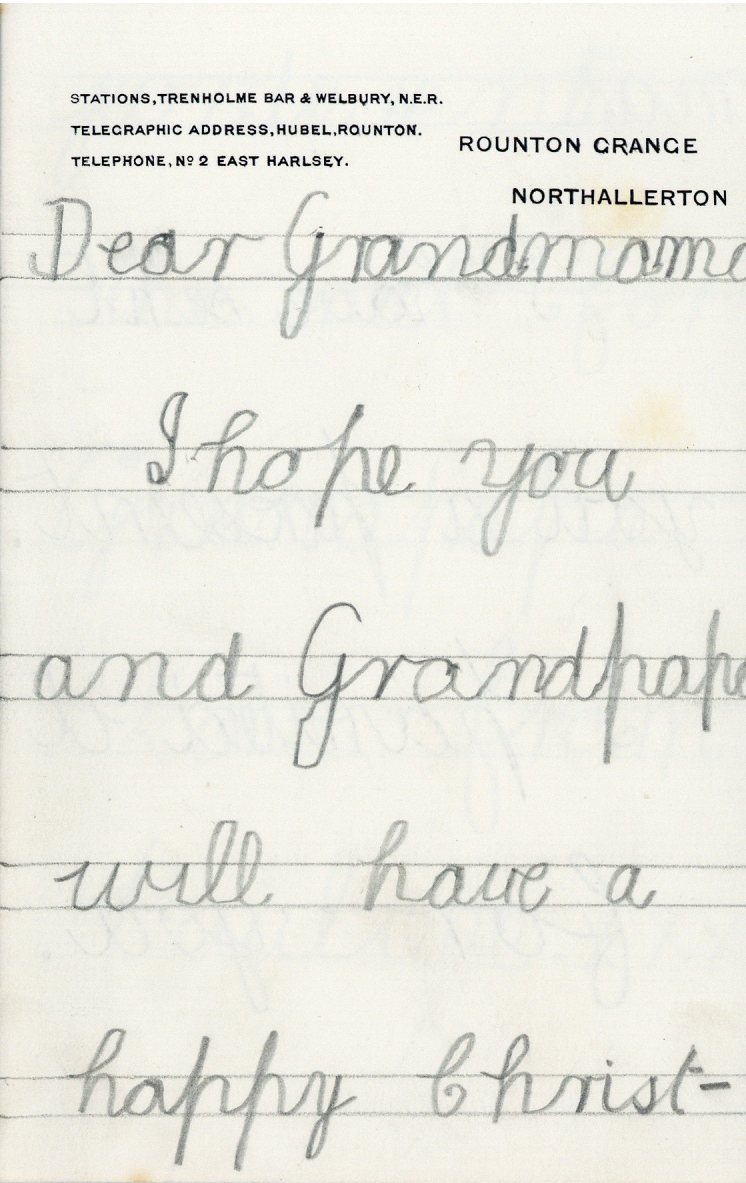 STATIONS, TRENHOLME BAR & WELBURY, N.E.R.
TELEGRAPHIC ADDRESS, HUBEL, ROUNTON.
TELEPHONE, Nº 2 EAST HARLSEY.
ROUNTON GRANGE
NORTHALLERTON
Dear Grandmama
I hope you
and Grandpapa
will have a
happy Christ-